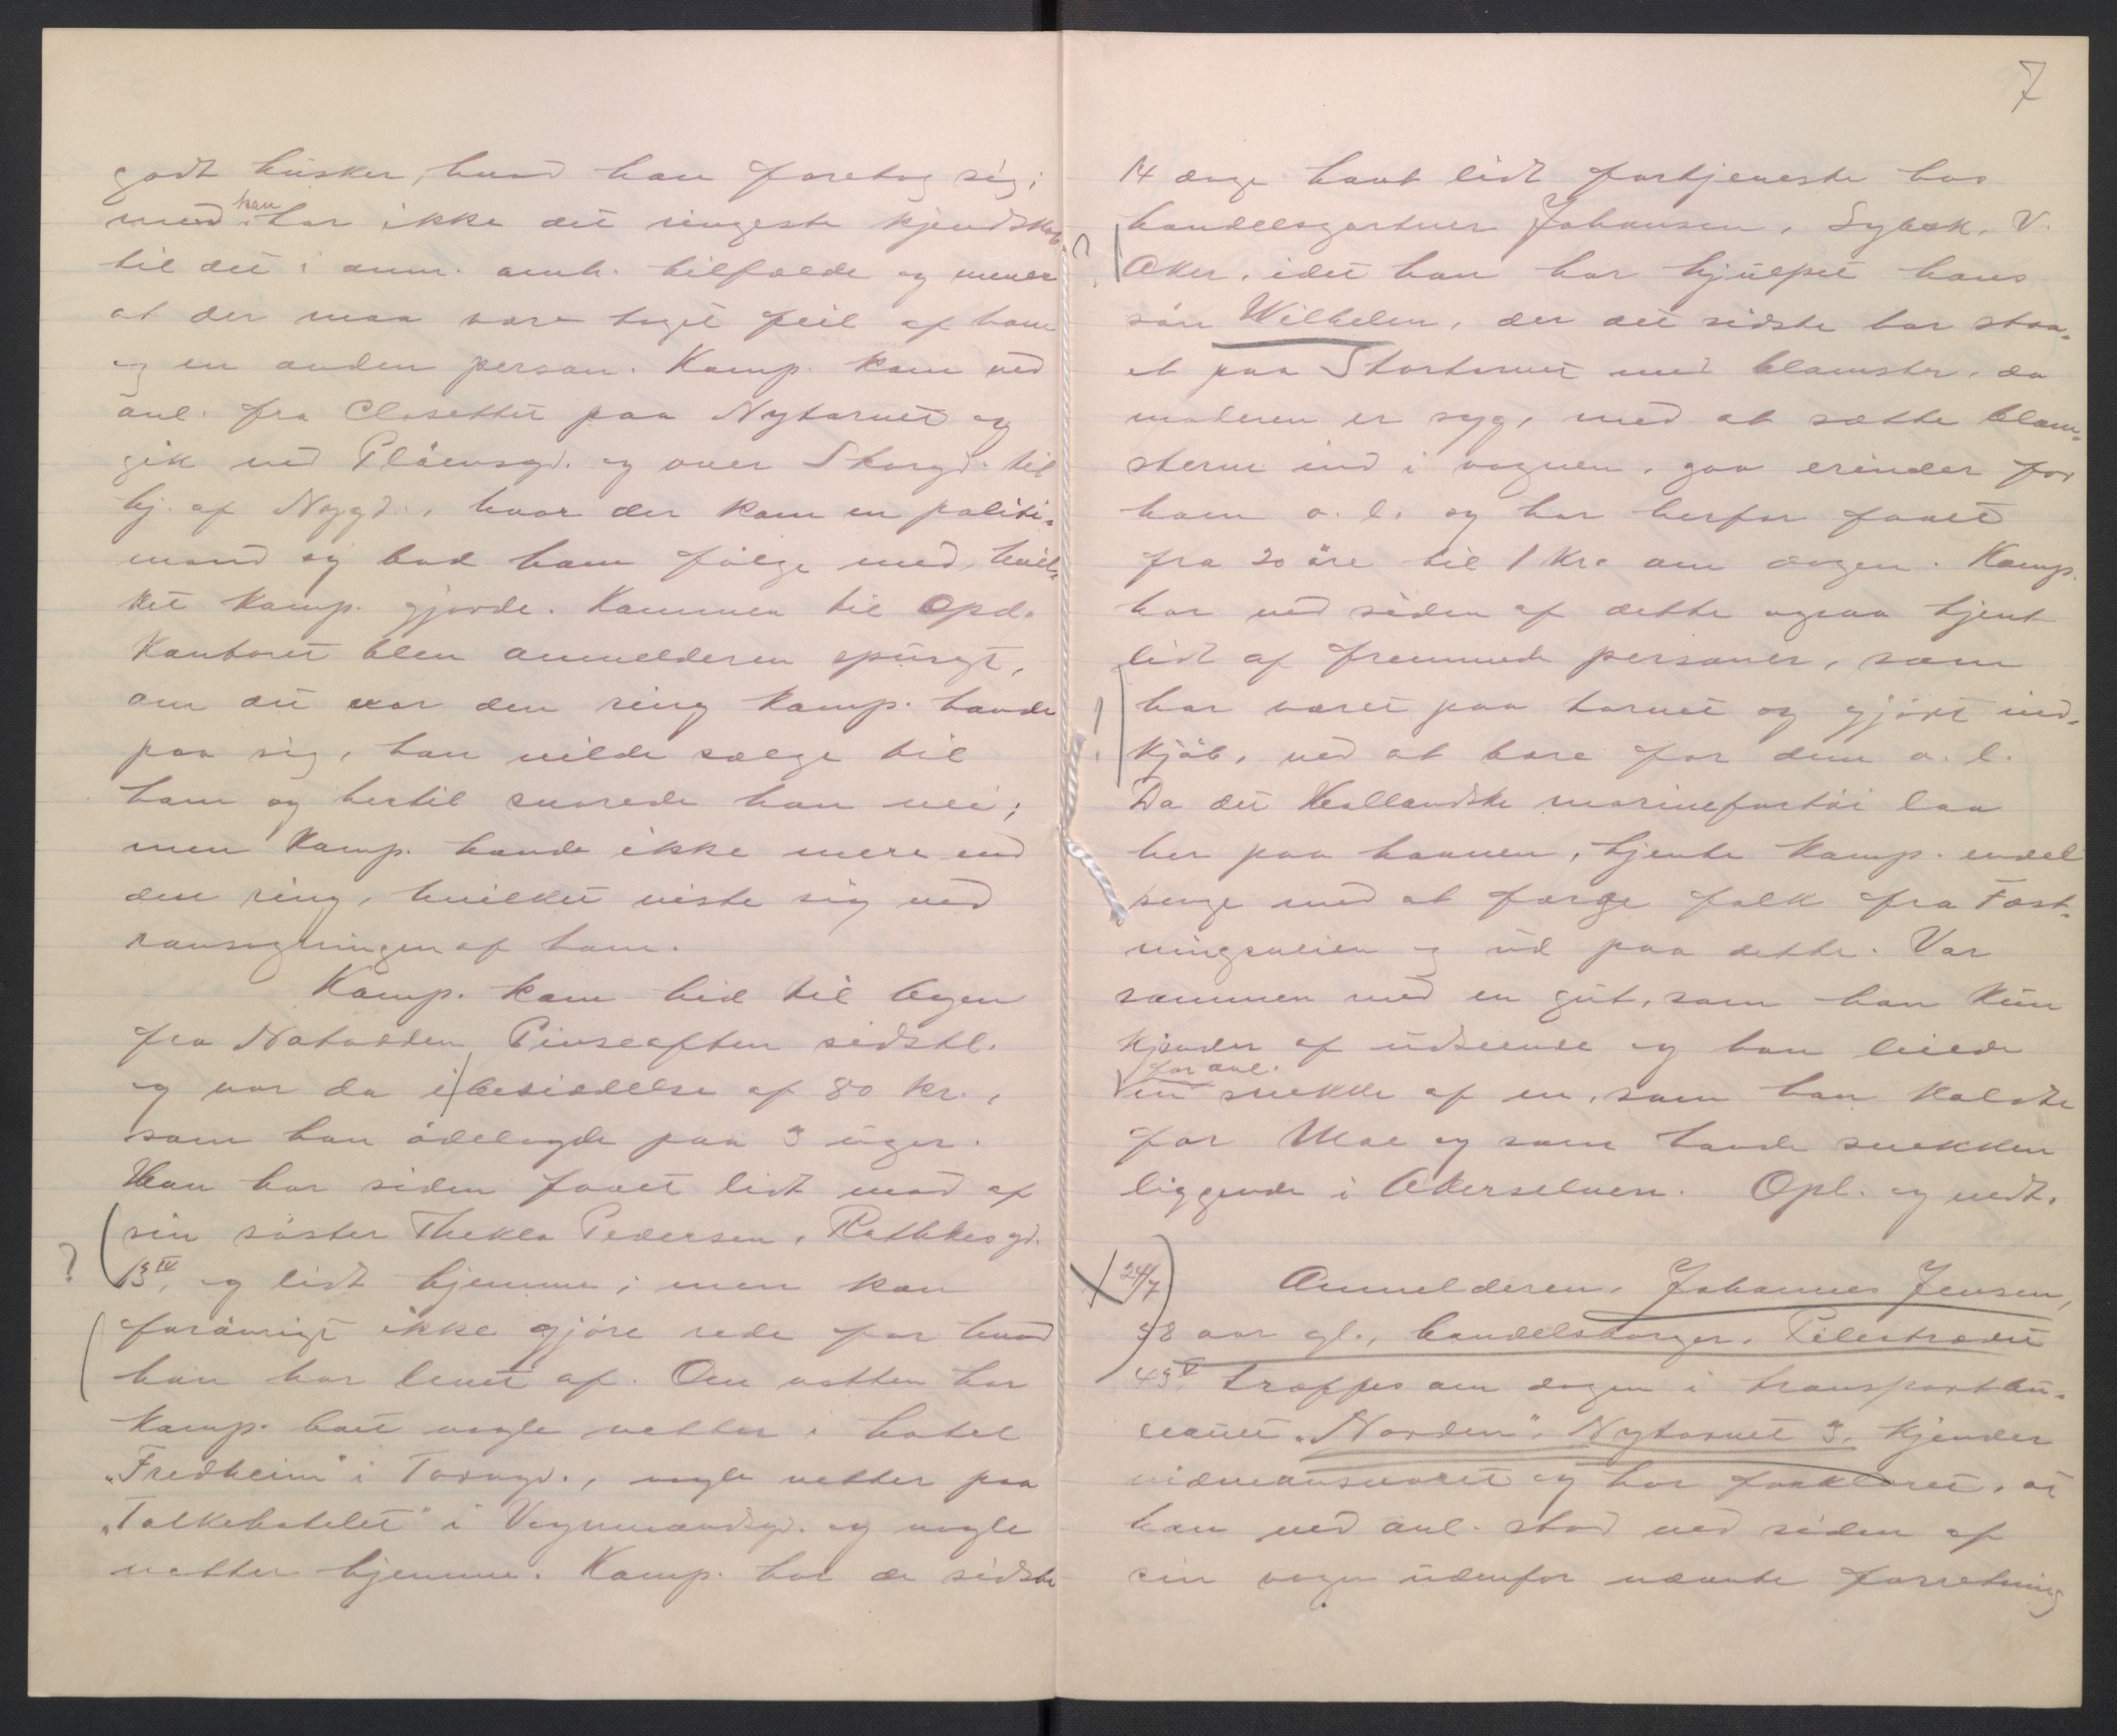 godt husker, hvad han foretog sig;
men han har ikke det ringeste kjendskab
til det i anm. omh. tilfælde og mener
at der maa være taget feil af ham
og en anden person. Komp. kom ved
anl. fra Closettet paa Nytorvet og
gik ned Plöensgd. og over Storgd. til
hj. af Nygd., hvor der kom en politi-
mand og bad ham følge med, hvil-
ket Komp. gjorde. Kommen til Opd.
Kontoret blev anmelderen spurgt,
om det var den ring Komp. havde
paa sig, han vilde sælge til
ham og hertil svarede han nei;
men Komp. havde ikke mere end
den ring, hvilket viste sig ved
ransagningen af ham.
Komp. kom hid til byen
fra Notodden Pinseaften sidstl.
og var da i besiddelse af 80 kr.,
som han ödelagde paa 3 uger.
Han har siden faaet lidt mad af
sin söster Thekla Pedersen, Rathkesgd.
? 13 IV, og lidt hjemme; men kan
forövrigt ikke gjöre rede for hvad
han har levet af. Om natten har
Komp. boet nogle netter i hotel
„Fredheim" i Torvgd., nogle netter paa
„Folkehotellet" i Vognmandsgd. og nogle
netter hjemme. Komp. har de sidste
7
14 dage havt lidt fortjeneste hos
handelsgartner Johansen, Sybæk, V.
? Aker, idet han har hjulpet hans
sön Wilhelm, der det sidste har staa-
et paa Stortorvet med blomster, da
moderen er syg, med at sætte blom-
sterne ind i vognen, gaa erinder for
ham o. l. og har herfor faaet
fra 20 öre til 1 Kr. om dagen. Komp.
har ved siden af dette ogsaa tjent
lidt af fremmede personer, som
har været paa torvet og gjört ind-
kjöb, ved at bære for dem o. l.
Da det Hollandske marinefartöi laa
her paa havnen, tjente Komp. endel
penge med at færge folk fra Fæst-
ningsveien og ud paa dette. Var
sammen med en gut, som han kun
kjender af udseende og han leiede
for anl.
en snekke af en, som han kaldte
for Moe og som havde snekken
liggende i Akerselven. Opl. og vedt.
24/7 Anmelderen, Johannes Jensen,
38 aar gl., handelsborger, Pilestrædet
43 V, træffes om dagen i transportbu-
reauet „Norden", Nytorvet 3, kjender
vidneansvaret og har forklaret, at
han ved anl. stod ved siden af
sin vogn udenfor nævnte forretning